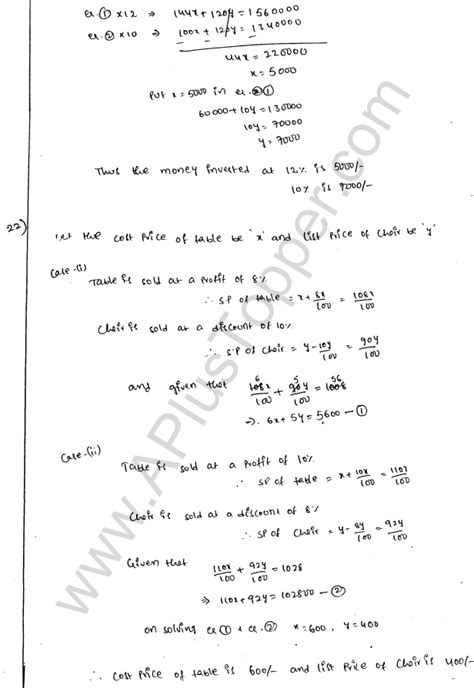 eq. ① ×12 ⇒ 144x + 120y = 1560000
eq. ② ×10 ⇒ 100x + 120y = 1340000
44x = 220000
x = 5000
Put x = 5000 in eq. ①
60000 + 10y = 130000
10y = 70000
y = 7000
Thus the money invested at 12% is 5000/-
10% is 7000/-
22)
Let the cost Price of table be 'x' and list Price of Chair be 'y'
Case-(i)
Table is sold at a Profit of 8%
∴ SP of table = x + 8x/100 = 108x/100
Chair is sold at a discount of 10%
∴ SP of Chair = y - 10y/100 = 90y/100
and given that 108x/100 + 90y/100 = 1008
6 5 56
⇒ 6x + 5y = 5600 — ①
Case-(ii)
Table is sold at a Profit of 10%
∴ SP of table = x + 10x/100 = 110x/100
Chair is sold at a discount of 8%
∴ SP of Chair = y - 8y/100 = 92y/100
Given that 110x/100 + 92y/100 = 1028
⇒ 110x + 92y = 102800 — ②
on solving eq ① & eq. ② x = 600, y = 400
∴ Cost Price of table is 600/- and list Price of Chair is 400/-
www.APlusTopper.com